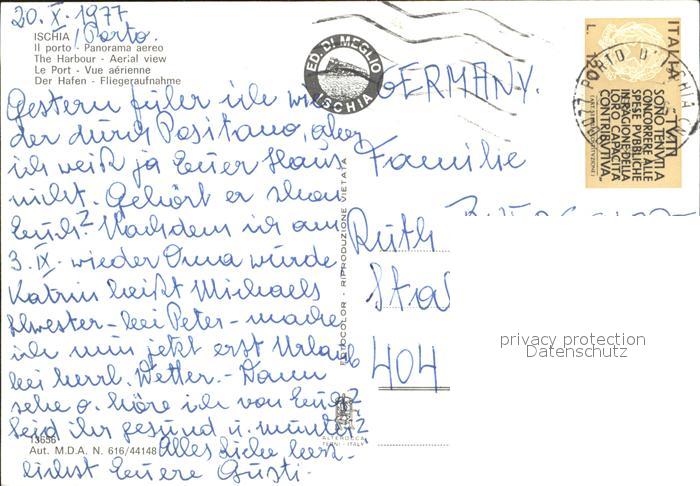 20. X. 1977
ISCHIA / Porto.
Il porto - Panorama aereo
The Harbour - Aerial view
Le Port - Vue aérienne
Der Hafen - Fliegeraufnahme
Gestern fuhr ich wie
der durch Positano, aber
ich weiß ja Euer Haus
nicht. Gehört er schon
Euch? Nachdem ich am
3. IX. wieder Oma wurde
Katrin heißt Michaels
Schwester - bei Peter - mache
ich nun jetzt erst Urlaub
bei herrl. Wetter. - Wann
sehe o. höre ich von Euch?
Seid ihr gesund u. munter?
Alles Liebe herz-
lichst Euere Gusti.
13656
Aut. M.D.A. N. 616/44148
FOTOCOLOR - RIPRODUZIONE VIETATA
ALTEROCCA
TERNI - ITALY
ED. DI MEGLIO
ISCHIA
GERMANY.
Familie
Ruth
404
ITALIA
L.
TUTTI
SONO TENUTI A
CONCORRERE ALLE
SPESE PUBBLICHE
IN RAGIONE DELLA
LORO CAPACITÀ
CONTRIBUTIVA.
PORTO D'ISCHIA
privacy protection
Datenschutz